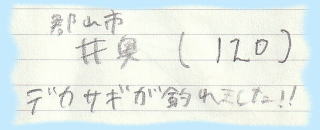 郡山市
井奥 (120)
デカサギが釣れました!!